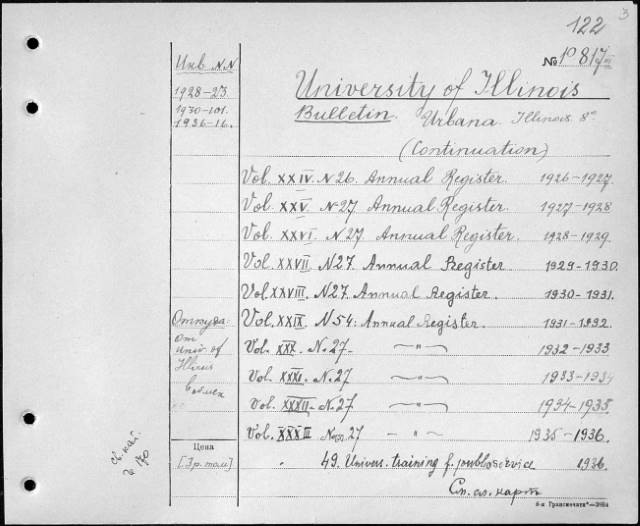 3
122
№ 10817
Инв NN
1928-23
1930-101.
1936-16.
University of Illinois
Bulletin. Urbana Illinois 8°
(Continuation)
Vol. XXIV. N 26. Annual Register. 1926-1927.
Vol. XXV. N 27. Annual Register. 1927-1928
Vol. XXVI. N 27. Annual Register. 1928-1929.
Vol. XXVII. N 27. Annual Register 1929-1930.
Vol. XXVIII. N 27. Annual Register. 1930-1931.
Vol. XXIX. N 54. Annual Register. 1931-1932.
Vol. XXX. N. 27. — „ — 1932-1933
Vol. XXXI. N. 27 — „ — 1933-1934
Vol. XXXII. N. 27 — „ — 1934-1935
Vol. XXXIII 27 — „ — 1935-1936.
49. Univers. training f. public service 1936.
См. сл. карт
Откуда:
от
Univ. of
обмен
Цена
[3 р. том]
6-я Транспечати—3884